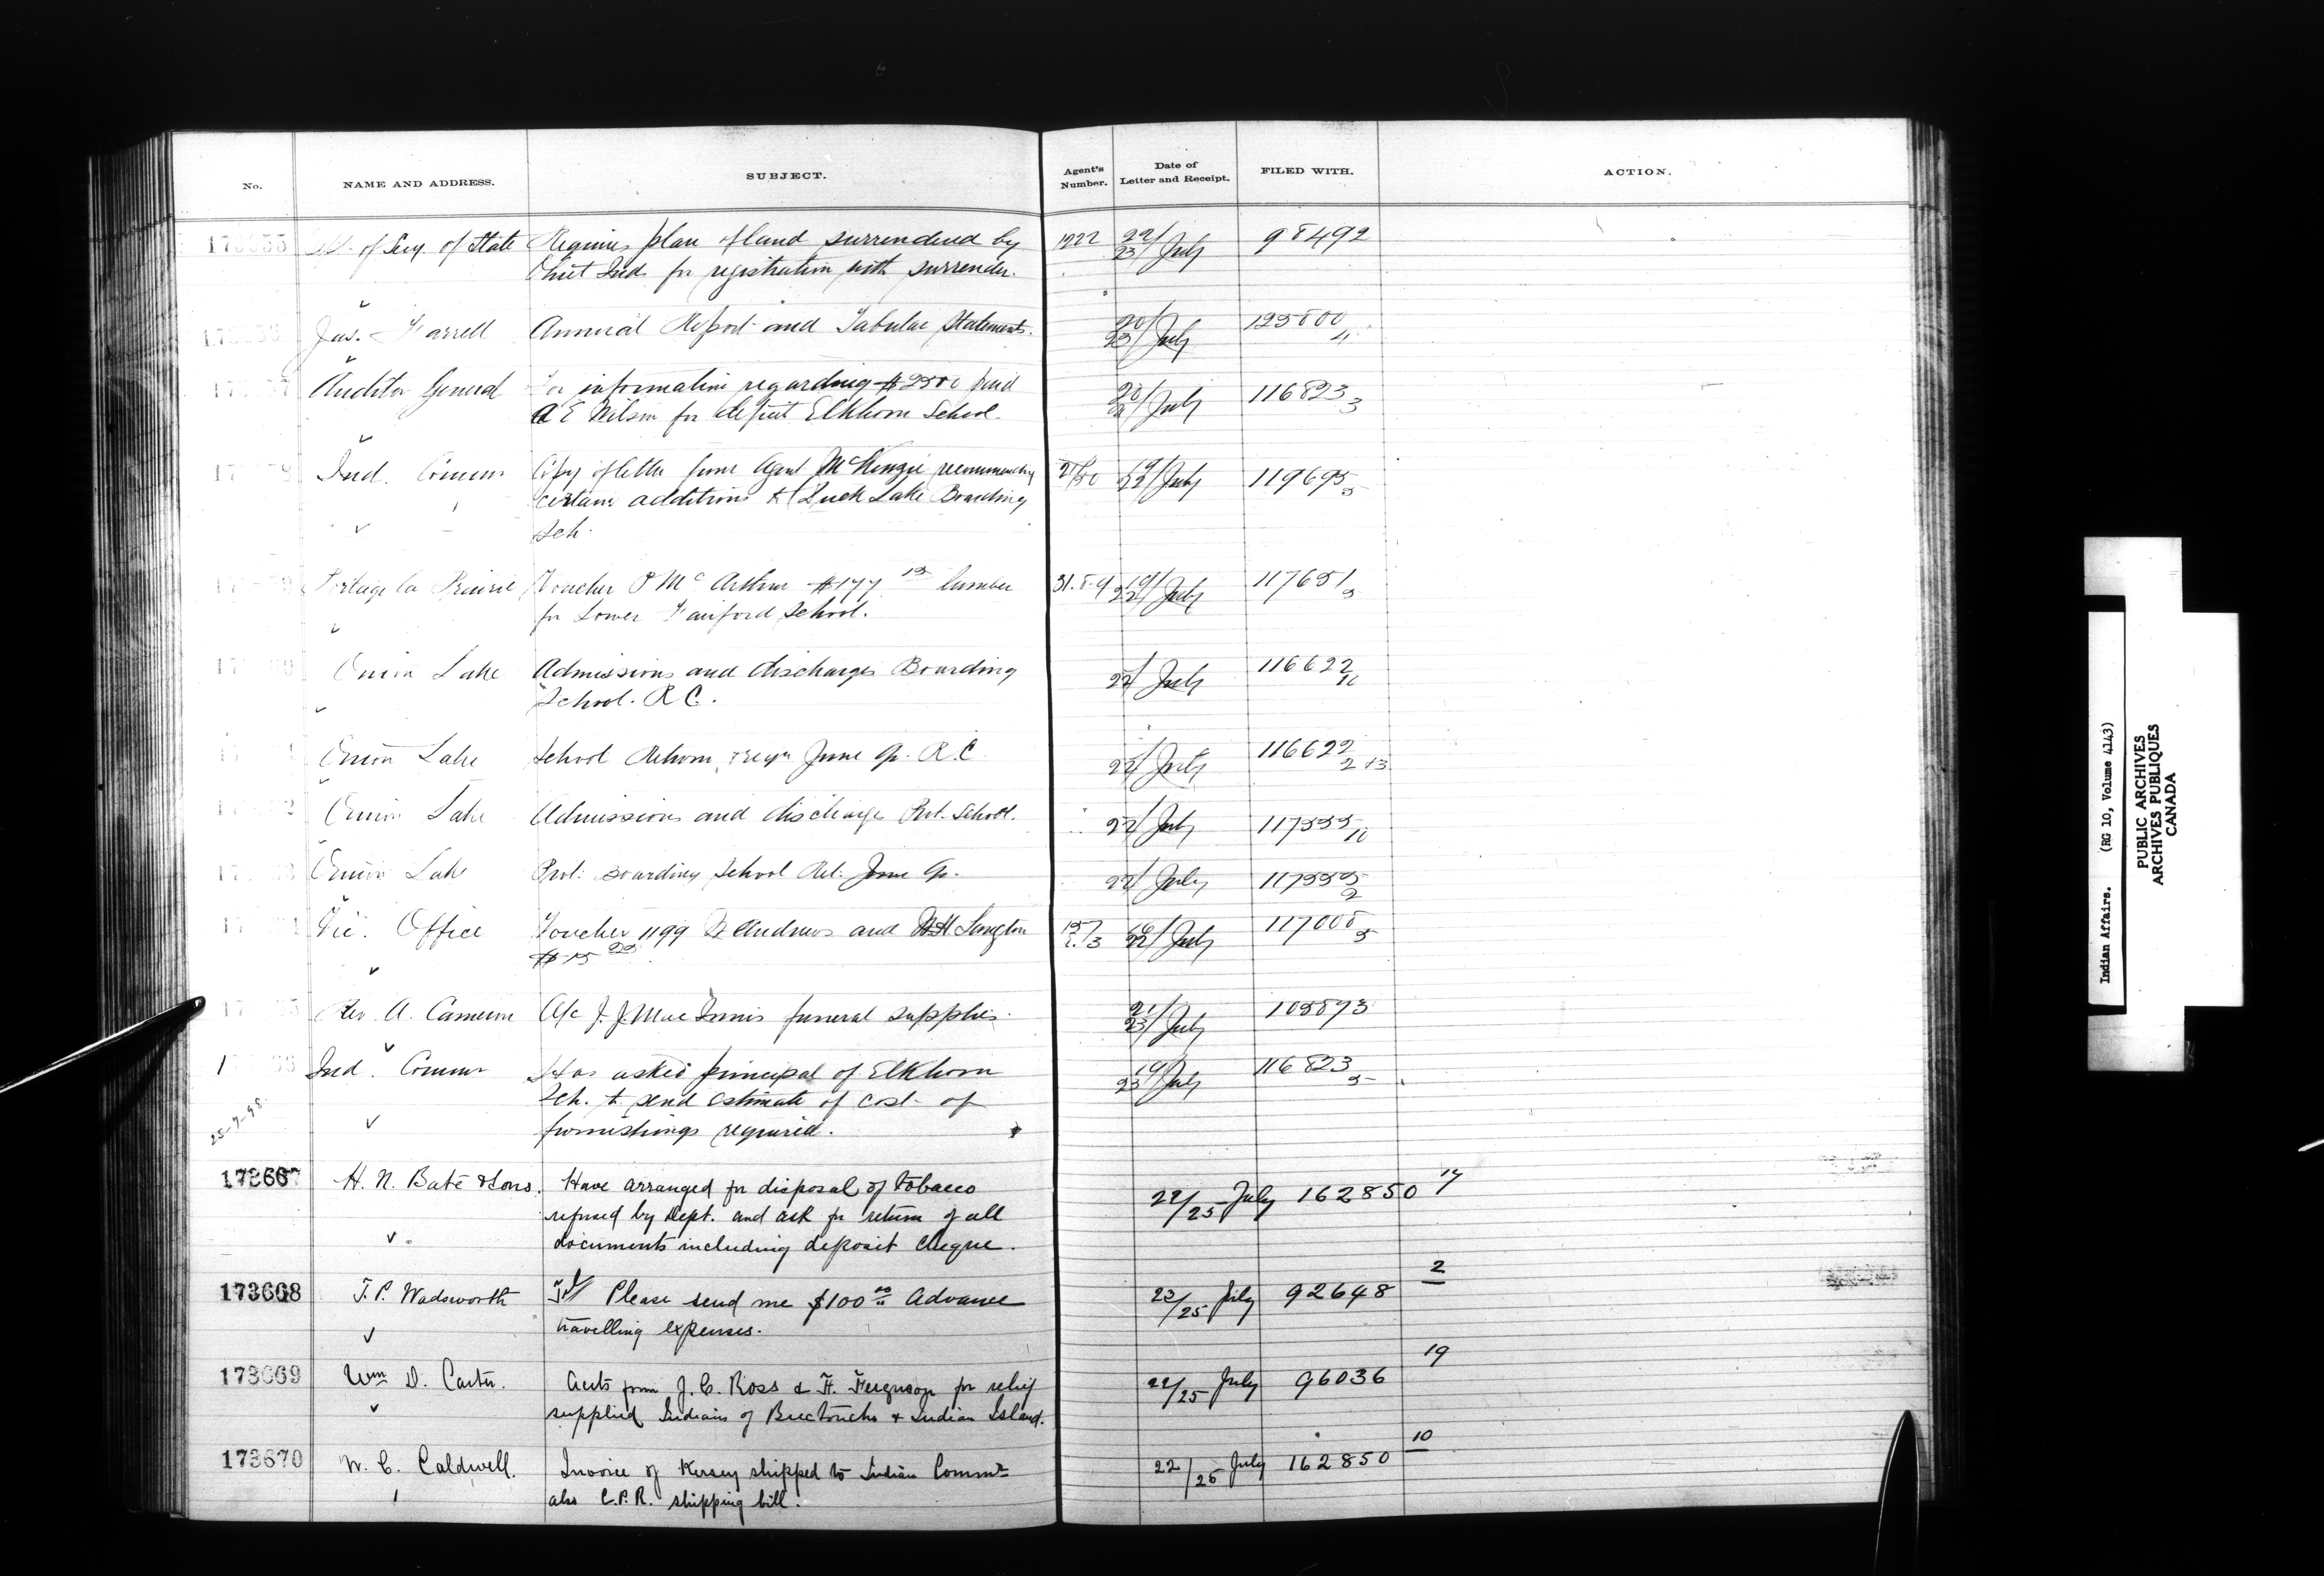 No. NAME AND ADDRESS. SUBJECT. Agent's Number. Date of Letter and Receipt. FILED WITH. ACTION.
173655 of Secy. of State Requires plan of land surrendered by 1222 22/23 July 98492
Ind. for registration with surrender.
Jas. Farrell Annual Report and Tabular Statements. 20/23 July 125800 4
Auditor General For information regarding $2500 paid July 116823 3
A E Wilson for deficit Elkhorn School.
Ind. Commr Copy of letter from Agent McKenzie recommending 19/22 July 119695 5
certain additions to Duck Lake Boarding
Sch.
Portage la Prairie Voucher P McArthur $177 15 lumber 31.89 19/22 July 117651 5
for Lower Fairford School.
Onion Lake Admissions and discharges Boarding 22/ July 116622 10
School. R C.
Onion Lake School Return June qr. R.C. 22/ July 116622 2+3
Onion Lake Admissions and discharge Prot. School. 22/ July 117335 10
Onion Lake Prot. Boarding School Ret. June qr. 22/ July 117335 2
Vic. Office Voucher 1199 Andrews and Langton 16/22 July 117008 5
$15
Rev A. Cameron A/c J. J. MacInnis funeral supplies. 21/23 July 105873
Ind. Commr Has asked principal of Elkhorn 19/23 July 116823 5
Sch. to send estimate of cost of
25-7-98
furnishings required.
173667 H. N. Bate & Sons. Have arranged for disposal of tobacco 22/25 July 162850 14
refused by Dept. and ask for return of all
documents including deposit cheque.
173668 T. P. Wadsworth Tel/ Please send me $100 00 Advance 23/25 July 92648 2
travelling expenses.
173669 Wm D. Carter. Accts from J. C. Ross & H. Ferguson for relief 22/25 July 96036 19
supplied Indians of Buctouche & Indian Island.
173670 W. C. Caldwell. Invoice of Kersey shipped to Indian Commr 22/25 July 162850 10
also C.P.R. shipping bill.
Indian Affairs. (RG 10, Volume 4143)
PUBLIC ARCHIVES
ARCHIVES PUBLIQUES
CANADA